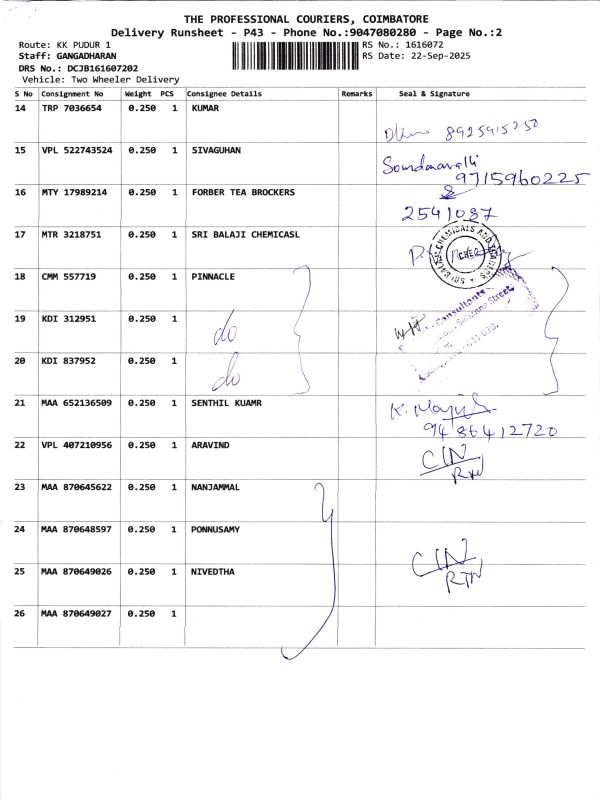 THE PROFESSIONAL COURIERS, COIMBATORE
Delivery Runsheet - P43 - Phone No.:9047080280 - Page No.:2
Route: KK PUDUR 1 RS No.: 1616072
Staff: GANGADHARAN RS Date: 22-Sep-2025
DRS No.: DCJB161607202
Vehicle: Two Wheeler Delivery
S No Consignment No Weight PCS Consignee Details Remarks Seal & Signature
14 TRP 7036654 0.250 1 KUMAR
8925915250
15 VPL 522743524 0.250 1 SIVAGUHAN
9715960225
16 MTY 17989214 0.250 1 FORBER TEA BROCKERS
2541087
17 MTR 3218751 0.250 1 SRI BALAJI CHEMICASL
SRI BALAJI CHEMICALS AND
18 CMM 557719 0.250 1 PINNACLE
Consultants
Street
19 KDI 312951 0.250 1 do
20 KDI 837952 0.250 1 do
21 MAA 652136509 0.250 1 SENTHIL KUAMR
9486412720
22 VPL 407210956 0.250 1 ARAVIND CIN
RTN
23 MAA 870645622 0.250 1 NANJAMMAL
24 MAA 870648597 0.250 1 PONNUSAMY
CIN
25 MAA 870649026 0.250 1 NIVEDTHA RTN
26 MAA 870649027 0.250 1